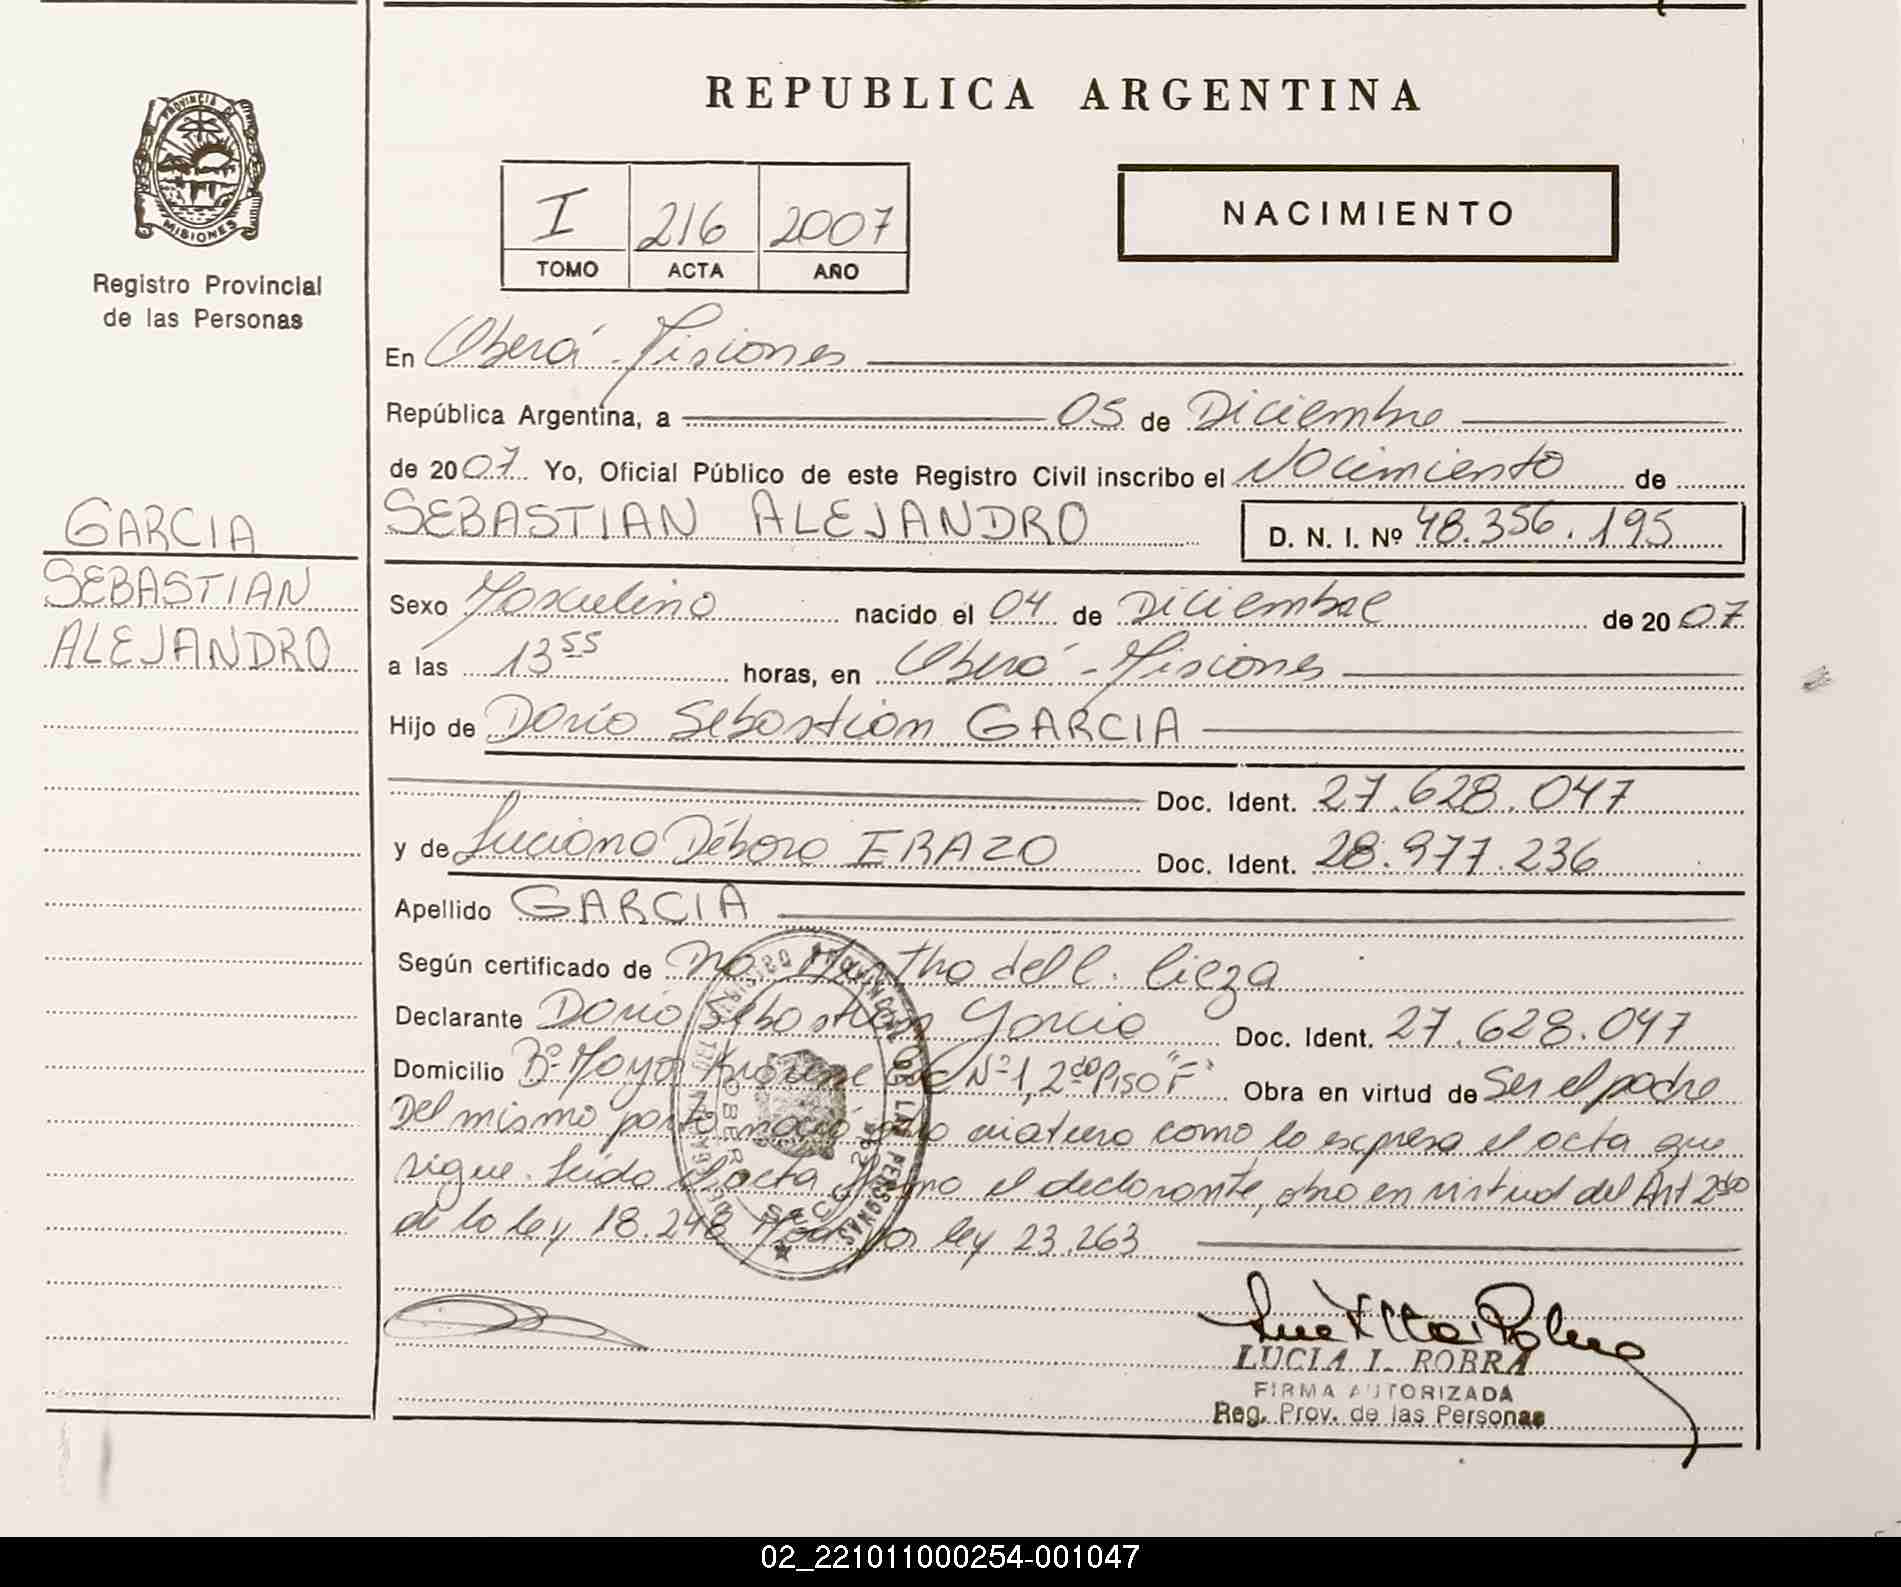 REPUBLICA ARGENTINA
PROVINCIA DE
MISIONES
Registro Provincial
de las Personas
I 216 2007
TOMO ACTA AÑO
NACIMIENTO
En Oberá - Misiones
República Argentina, a 05 de Diciembre
de 2007 Yo, Oficial Público de este Registro Civil inscribo el Nacimiento de
GARCIA
SEBASTIAN
ALEJANDRO
SEBASTIAN ALEJANDRO D. N. I. Nº 48.356.195
Sexo Masculino nacido el 04 de Diciembre de 2007
a las 13 55 horas, en Oberá - Misiones
Hijo de Dario Sebastian GARCIA
Doc. Ident. 27.628.047
y de Luciana Débora ERAZO Doc. Ident. 28.977.236
Apellido GARCIA
Según certificado de Dra. Martha del C. Cieza
Declarante Dario Sebastian Garcia Doc. Ident. 27.628.047
Domicilio Bº Mayor Nº 1, 2do Piso "F" Obra en virtud de Ser el padre
Del mismo parto nació otro criatura como lo expresa el acta que
sigue. Leida el acta firma el declarante, obra en virtud del Art 2do
de la ley 18.248 por ley 23.263
LUCIA I. ROBRA
FIRMA AUTORIZADA
Reg. Prov. de las Personas
02_221011000254-001047